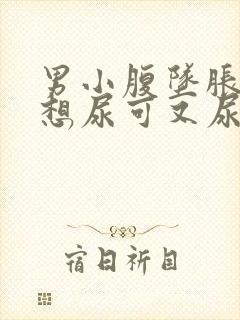 男小腹墜脹
想尿可又尿
宿日祈目